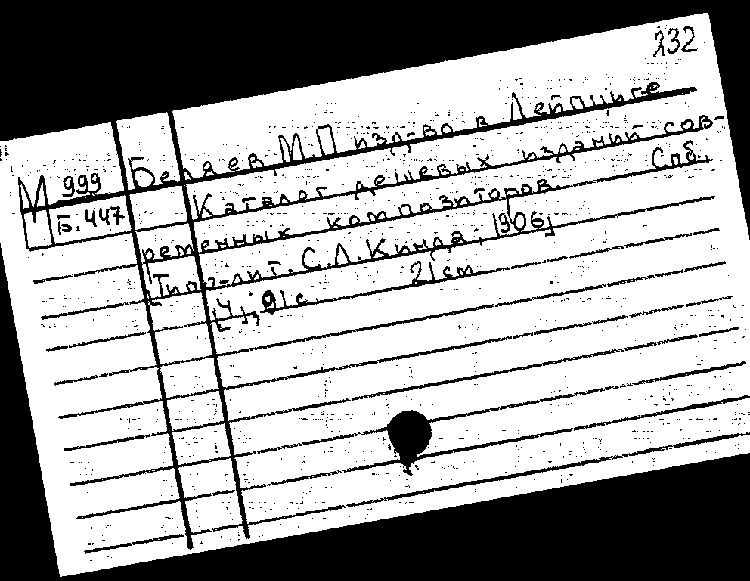 232
М 999 Беляев, М.П изд-во в Лейпциге
Б. 447 Каталог дешевых изданий сов-
ременных композиторов. Спб.
[Типо-лит. С.Л. Кинда, 1906]
[4], 91 с. 21 cm